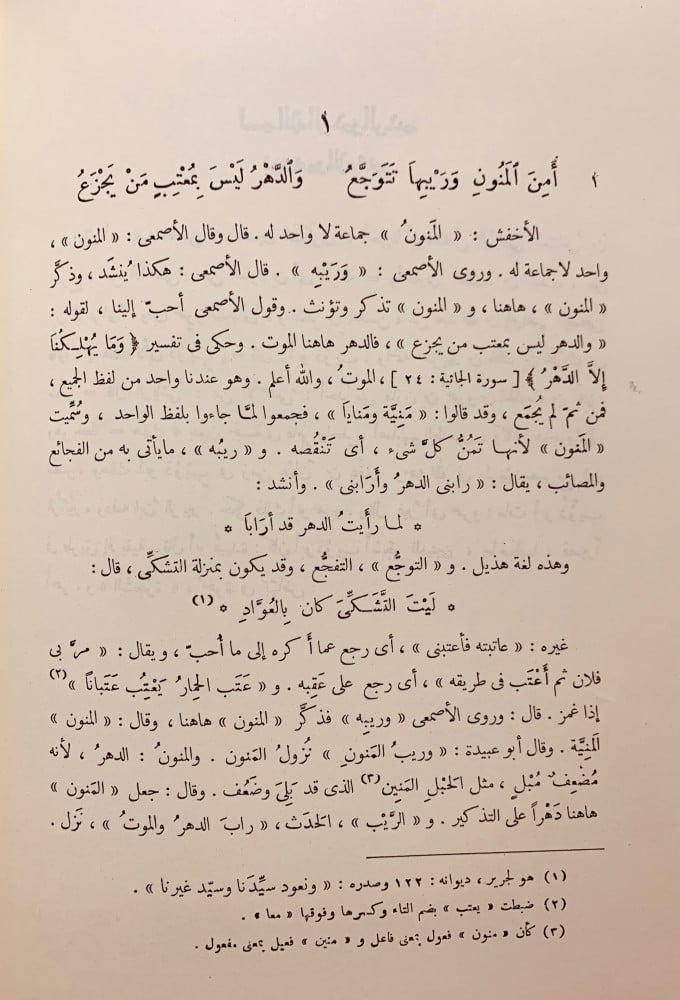 ١
١ أَمِنَ ٱلْمَنُونِ وَرَيْبِهَا تَتَوَجَّعُ وَٱلدَّهْرُ لَيْسَ بِمُعْتِبٍ مَنْ يَجْزَعُ
الأخفش : « المَنونُ » جماعة لا واحد له . قال وقال الأصمعى : « المنون » ،
واحد لاجماعة له . وروى الأصمعى : « وَرَيْبِهِ » . قال الأصمعى : هكذا يُنشَد ، وذكَّر
« المنون » ، هاهنا ، و « المنون » تذكر وتؤنث . وقول الأصمعى أحبّ إلينا ، لقوله :
« والدهر ليس بمعتب من يجزع » ، فالدهر هاهنا الموت . وحكى فى تفسير ﴿ وَمَا يُهْلِكُنَا
إِلاَّ الدَّهْرُ ﴾ [ سورة الجاثية : ٢٤ ] ، الموتُ ، والله أعلم . وهو عندنا واحد من لفظ الجميع ،
فمن ثمّ لم يُجمَع ، وقد قالوا : « مَنِيَّة ومَنايَا » ، فجمعوا لمَّا جاءوا بلفظ الواحد ، وسُمِّيت
« المَنون » لأنها تَمُنُّ كلَّ شىء ، أى تَنْقُصه . و « ريبُه » ، مايأتى به من الفجائع
والمصائب ، يقال : « رابنى الدهرُ وأَرَابنى » . وأنشد :
* لما رأَيتُ الدهر قد أرَابَا *
وهذه لغة هذيل . و « التوجُّع » ، التفجُّع ، وقد يكون بمنزلة التشكِّى ، قال :
* لَيْتَ التَّشَكِّىَ كان بِالعُوَّادِ * (١)
غيره : « عاتبته فأعتبنى » ، أى رجع عما أكره إلى ما أُحبّ ، ويقال : « مرَّ بى
فلان ثم أَعْتَب فى طريقه » ، أى رجع على عَقِبه . و « عَتَب الحِمارُ يَعْتُِب عَتَباناً » (٢)
إذا غمز . قال : وروى الأصمعى « وريبِه » فذكَّر « المنون » هاهنا ، وقال : « المنون »
المَنِيَّة . وقال أبو عبيدة : « وريبُ المَنونِ » نُزولُ المَنون . والمنونُ : الدهرُ ، لأنه
مُضْعِفٌ مُبْلٍ ، مثل الحَبْلِ المَنِين (٣) الذى قد بَلِىَ وضَعُف . وقال : جعل « المَنون »
هاهنا دَهْراً على التذكير . و « الرَّيْب » ، الحَدَث ، « رابَ الدهرُ والموتُ » ، نَزل .
(١) هو لجرير ، ديوانه : ١٢٢ وصدره : « ونعود سيِّدَنا وسيّد غيرنا » .
(٢) ضبطت « يعتب » بضم التاء وكسرها وفوقها « معا » .
(٣) كأن « منون » فعول بمعنى فاعل و « منين » فعيل بمعنى مفعول .